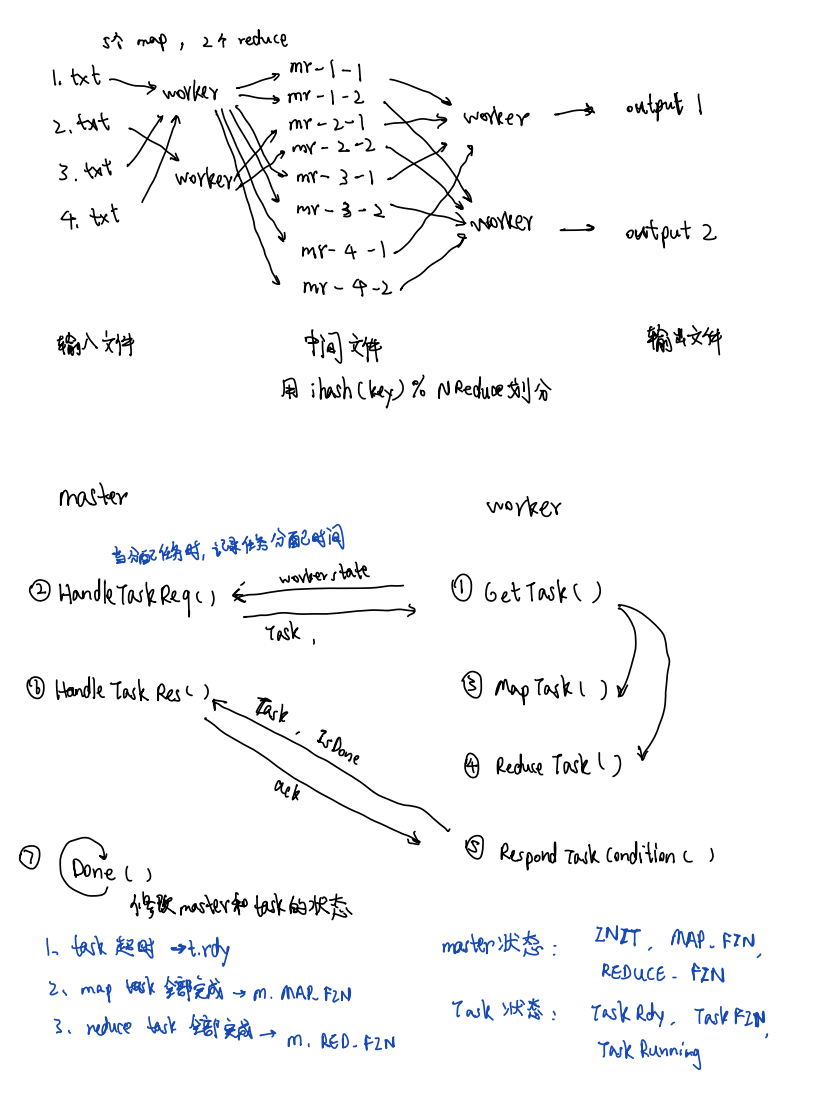 5个 map , 2个 reduce
1. txt
2. txt
3. txt
4. txt
worker
worker
mr-1-1
mr-1-2
mr-2-1
mr-2-2
mr-3-1
mr-3-2
mr-4-1
mr-4-2
worker
worker
output 1
output 2
输入文件
中间文件
输出文件
用 ihash(key) % NReduce划分
master
worker
当分配任务时, 记录任务分配时间
② HandleTaskReq()
workerstate
Task,
① GetTask()
③ MapTask()
④ ReduseTask()
⑥ Handle Task Res()
Task, IsDone
ack
⑤ Respond Task Condition()
⑦ Done()
修改master和task的状态
1、task 超时 → t.rdy
2、map task 全部完成 → m. MAP_FIN
3. reduce task 全部完成 → m. RED_FIN
master状态: INIT, MAP_FIN,
REDUCE_FIN
Task 状态: Task Rdy, Task FIN,
Task Running